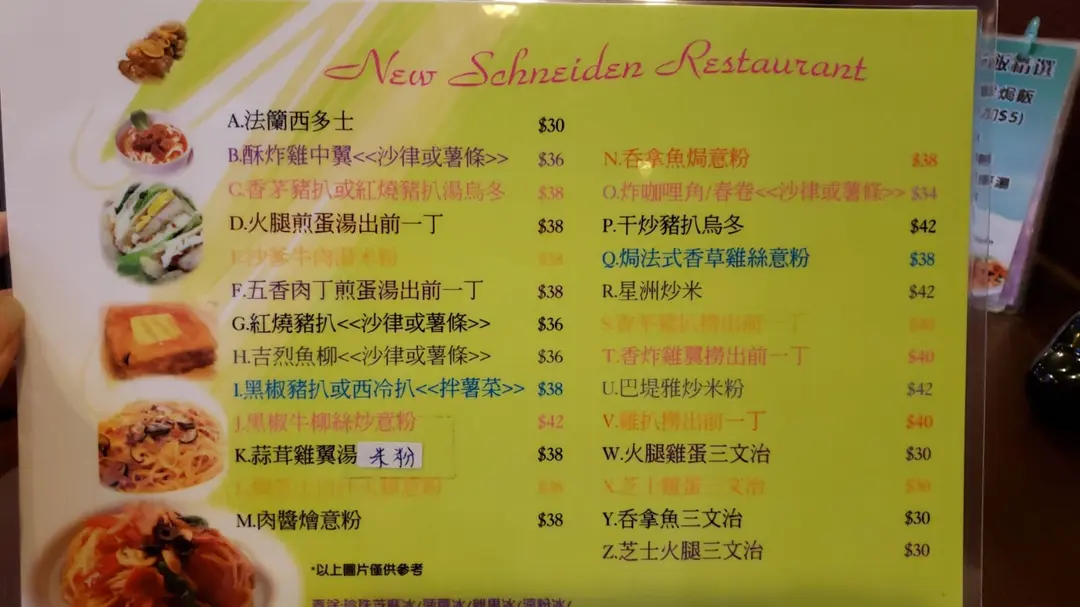 New Schneiden Restaurant
A.法蘭西多士 $30
B.酥炸雞中翼<<沙律或薯條>> $36
C.香茅豬扒或紅燒豬扒湯烏冬 $38
D.火腿煎蛋湯出前一丁 $38
E.沙爹牛肉湯米粉 $38
F.五香肉丁煎蛋湯出前一丁 $38
G.紅燒豬扒<<沙律或薯條>> $36
H.吉烈魚柳<<沙律或薯條>> $36
I.黑椒豬扒或西冷扒<<拌薯菜>> $38
J.黑椒牛柳絲炒意粉 $42
K.蒜茸雞翼湯米粉 $38
M.肉醬燴意粉 $38
N.吞拿魚焗意粉 $38
O.炸咖哩角/春卷<<沙律或薯條>> $34
P.干炒豬扒烏冬 $42
Q.焗法式香草雞絲意粉 $38
R.星洲炒米 $42
S.香茅豬扒撈出前一丁 $40
T.香炸雞翼撈出前一丁 $40
U.巴堤雅炒米粉 $42
V.雞扒撈出前一丁 $40
W.火腿雞蛋三文治 $30
X.芝士雞蛋三文治 $30
Y.吞拿魚三文治 $30
Z.芝士火腿三文治 $30
*以上圖片僅供參考
飯精選
焗飯
$5)
湯